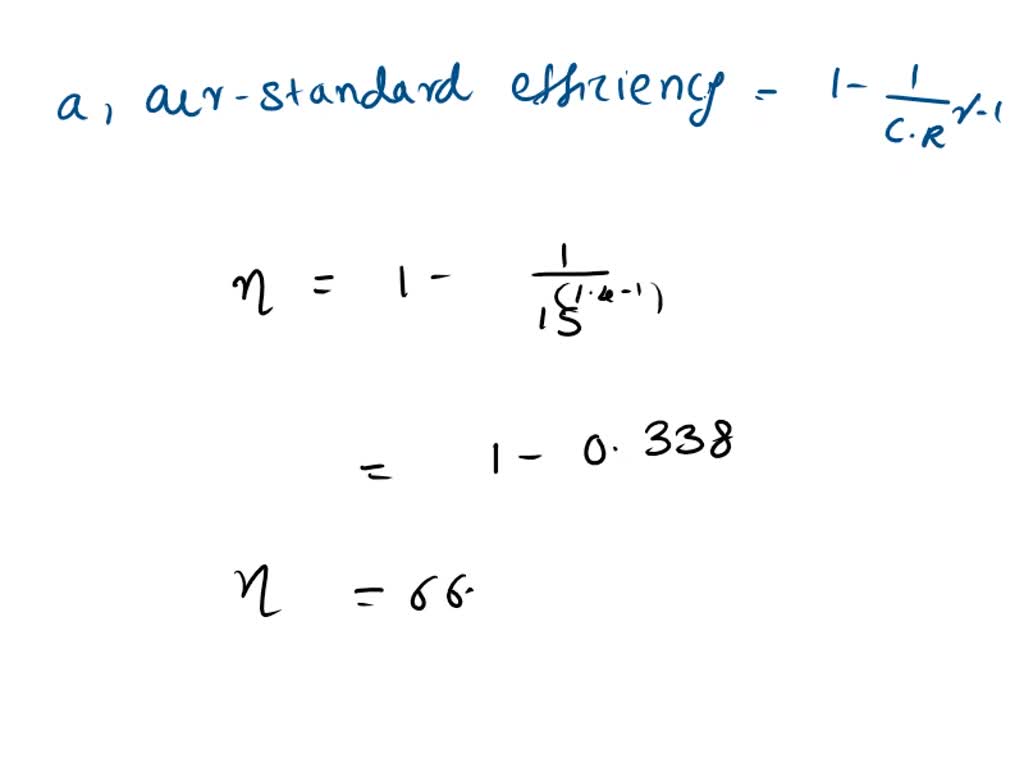 a, aer-standard effiziency = 1 - 1 / C.R^γ-1
η = 1 - 1 / 15^(1.4-1)
= 1 - 0.338
η = 66.